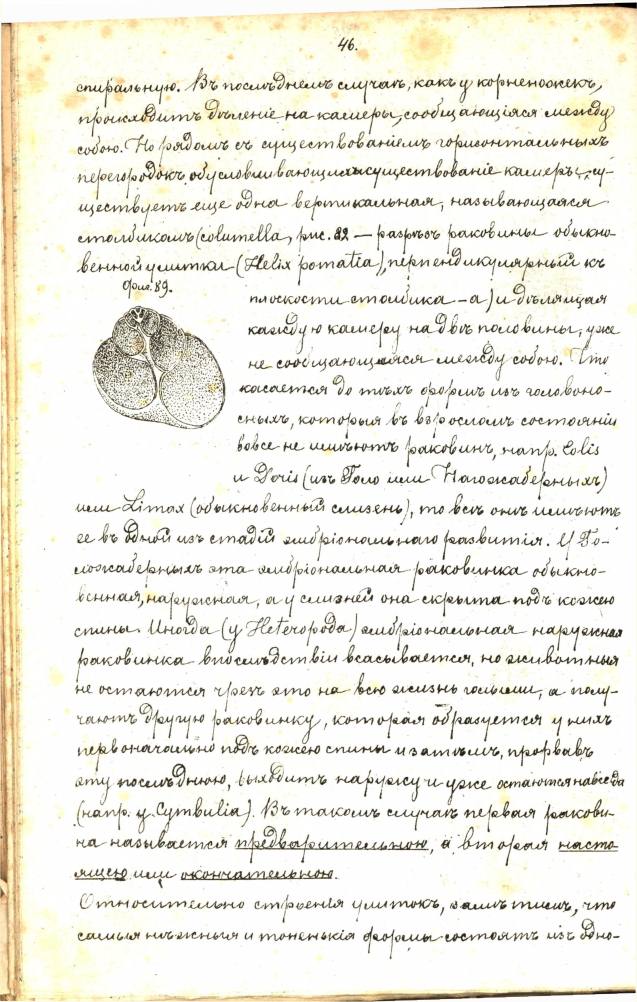 46.
спиральную. Въ послѣднемъ случаѣ, какъ у корненожекъ,
происходитъ дѣленіе на камеры, сообщающіяся между
собою. Но рядомъ съ существованіемъ горизонтальныхъ
перегородокъ, обусловливающихъ существованіе камеръ, су-
ществуетъ еще одна вертикальная, называющаяся
столбикомъ (columella, рис. 82 — разрѣзъ раковины обыкно-
венной улитки (Helix pomatia), перпендикулярный къ
Фиг. 89.
плоскости столбика — а) и дѣлящая
каждую камеру на двѣ половины, уже
не сообщающіяся между собою. Что
касается до тѣхъ формъ изъ головоно-
сныхъ, которыя въ взросломъ состояніи
вовсе не имѣютъ раковинъ, напр. Eolis
и Doris (изъ Голо или Нагожаберныхъ)
или Limax (обыкновенный слизень), то всѣ онѣ имѣютъ
ее въ одной изъ стадій эмбріональнаго развитія. У Го-
ложаберныхъ эта эмбріональная раковинка обыкно-
венная, наружная, а у слизней она скрыта подъ кожею
спины. Иногда (у Heteropoda) эмбріональная наружная
раковинка впослѣдствіи всасывается, но животныя
не остаются чрезъ это на всю жизнь голыми, а полу-
чаютъ другую раковинку, которая образуется у нихъ
первоначально подъ кожею спины и затѣмъ, прорвавъ
эту послѣднюю, выходитъ наружу и уже остаются навсегда
(напр. у Cymbulia). Въ такомъ случаѣ первая ракови-
на называется предварительною, а вторая насто-
ящею или окончательною.
Относительно строенія улитокъ, замѣтимъ, что
самыя нѣжныя и тоненькія формы состоятъ изъ одно-